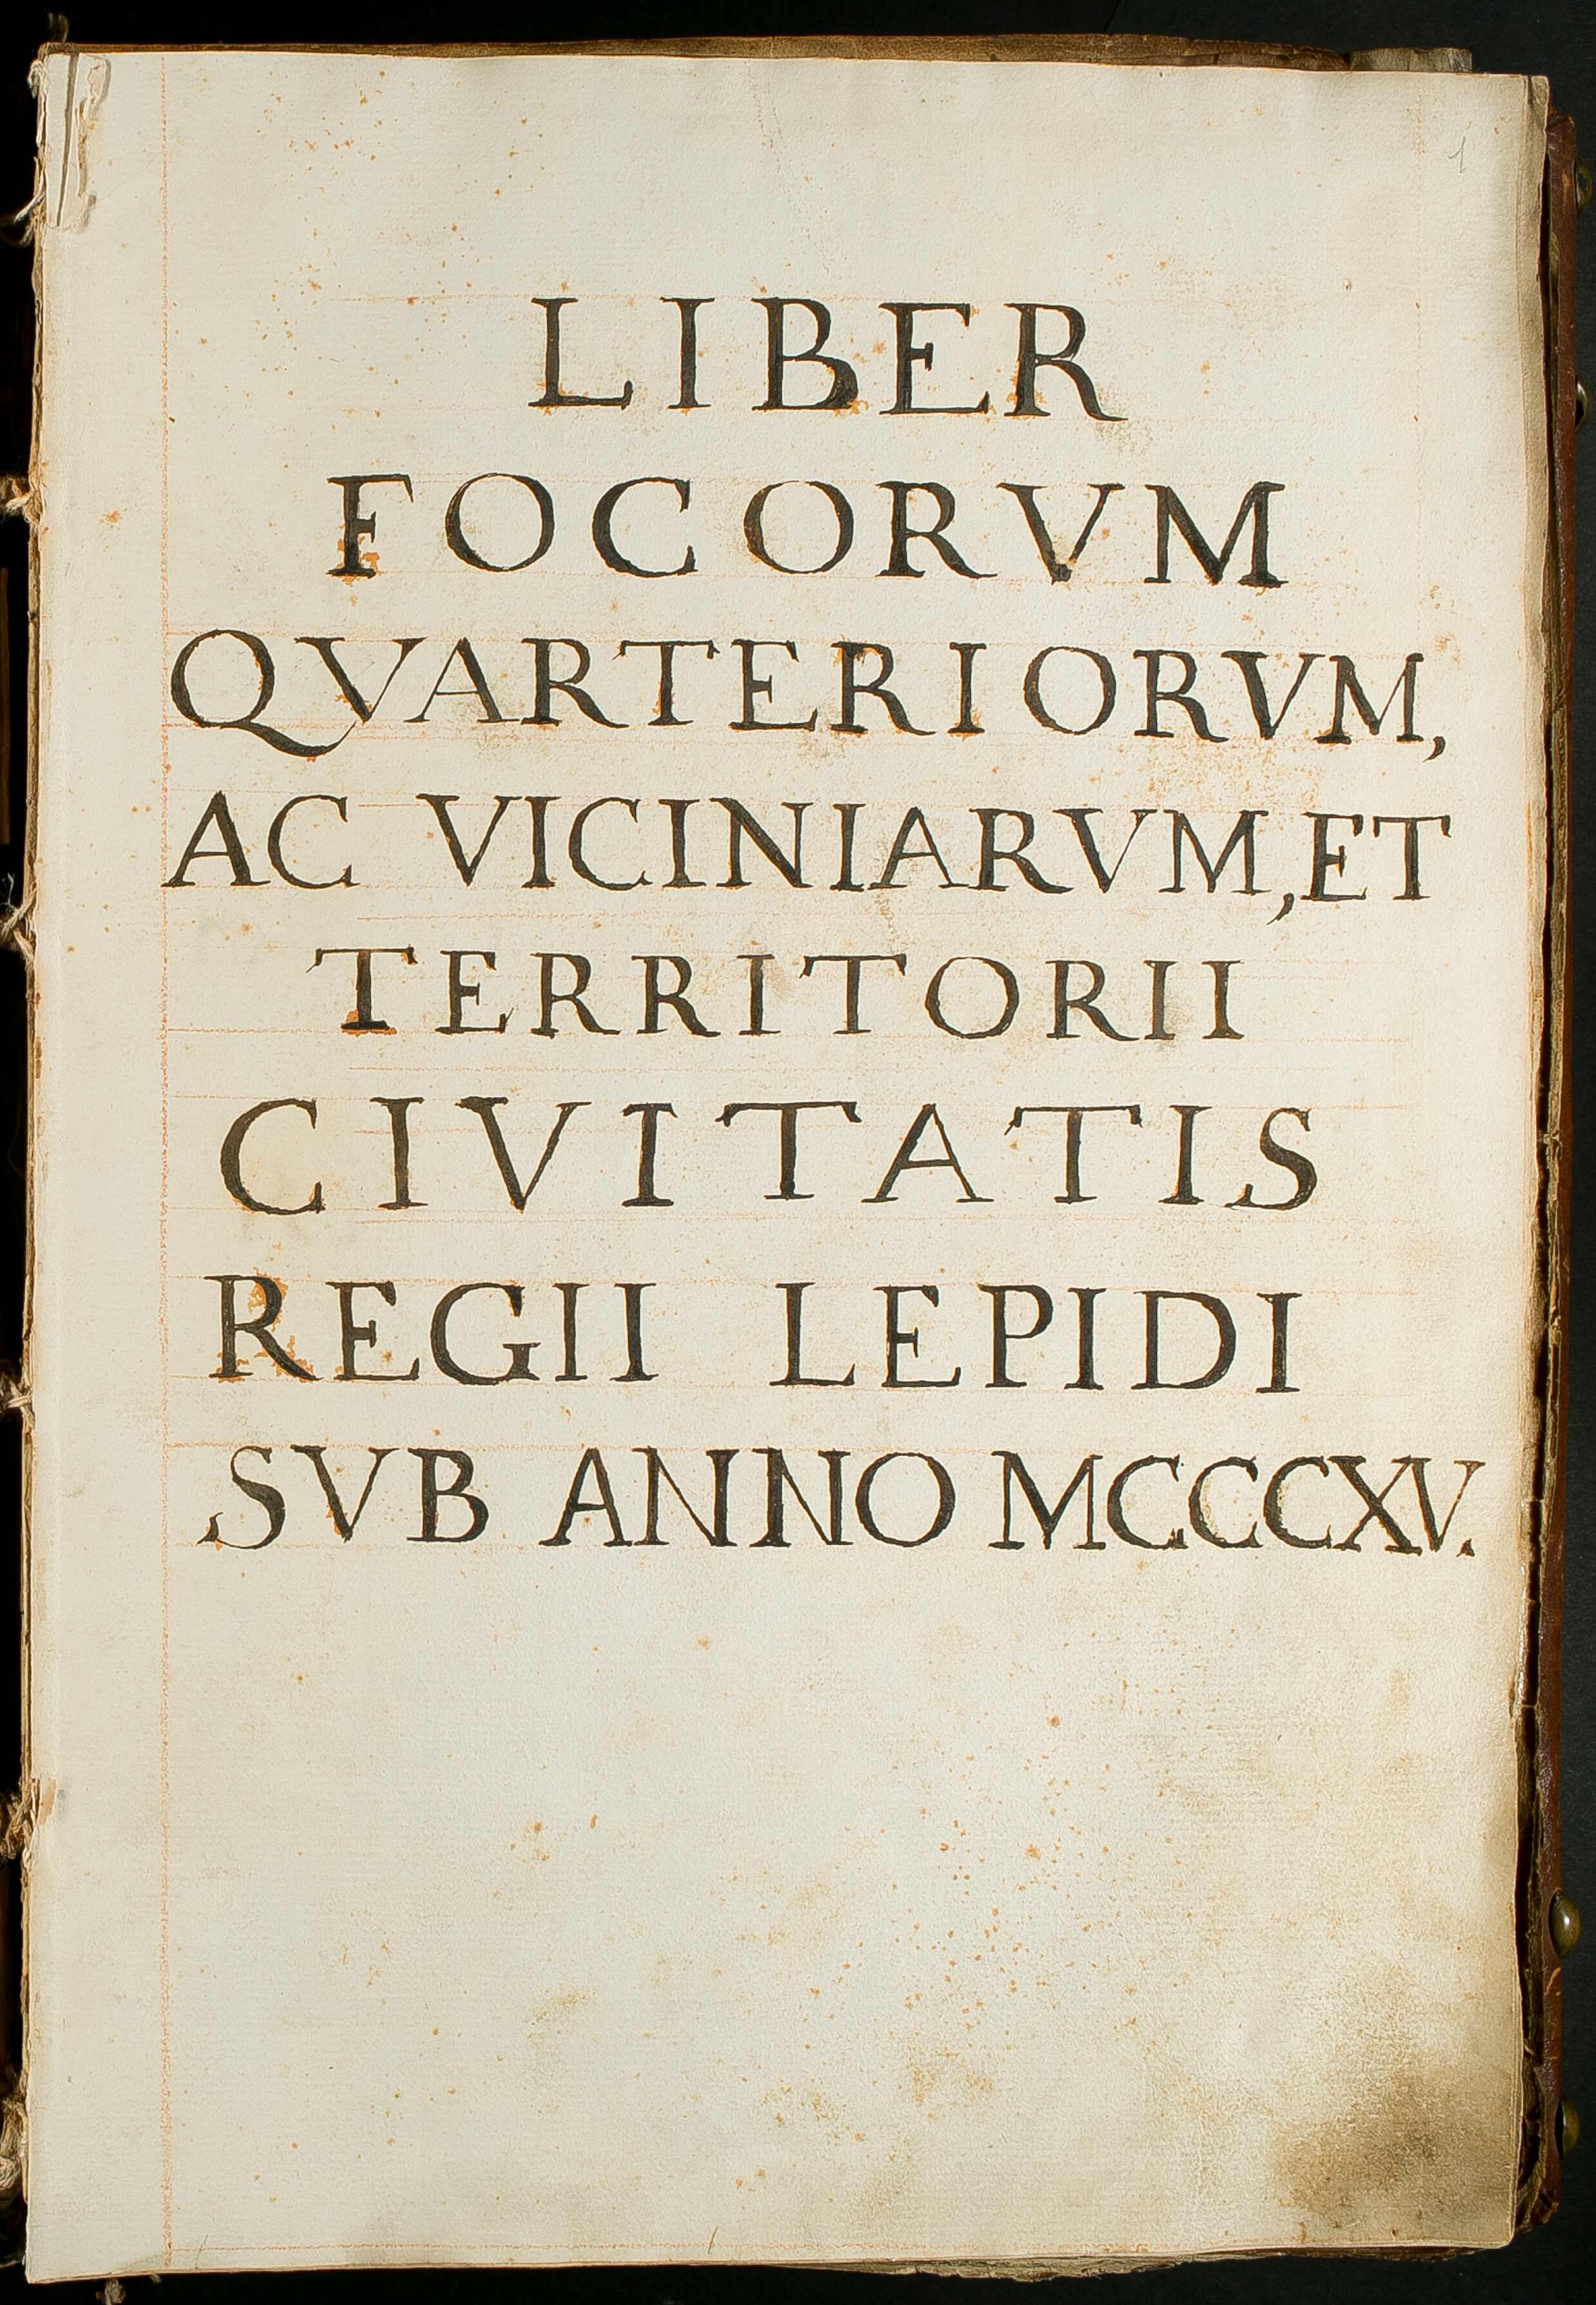 1
LIBER
FOCORVM
QVARTERIORVM,
AC VICINIARVM, ET
TERRITORII
CIVITATIS
REGII LEPIDI
SVB ANNO MCCCXV.